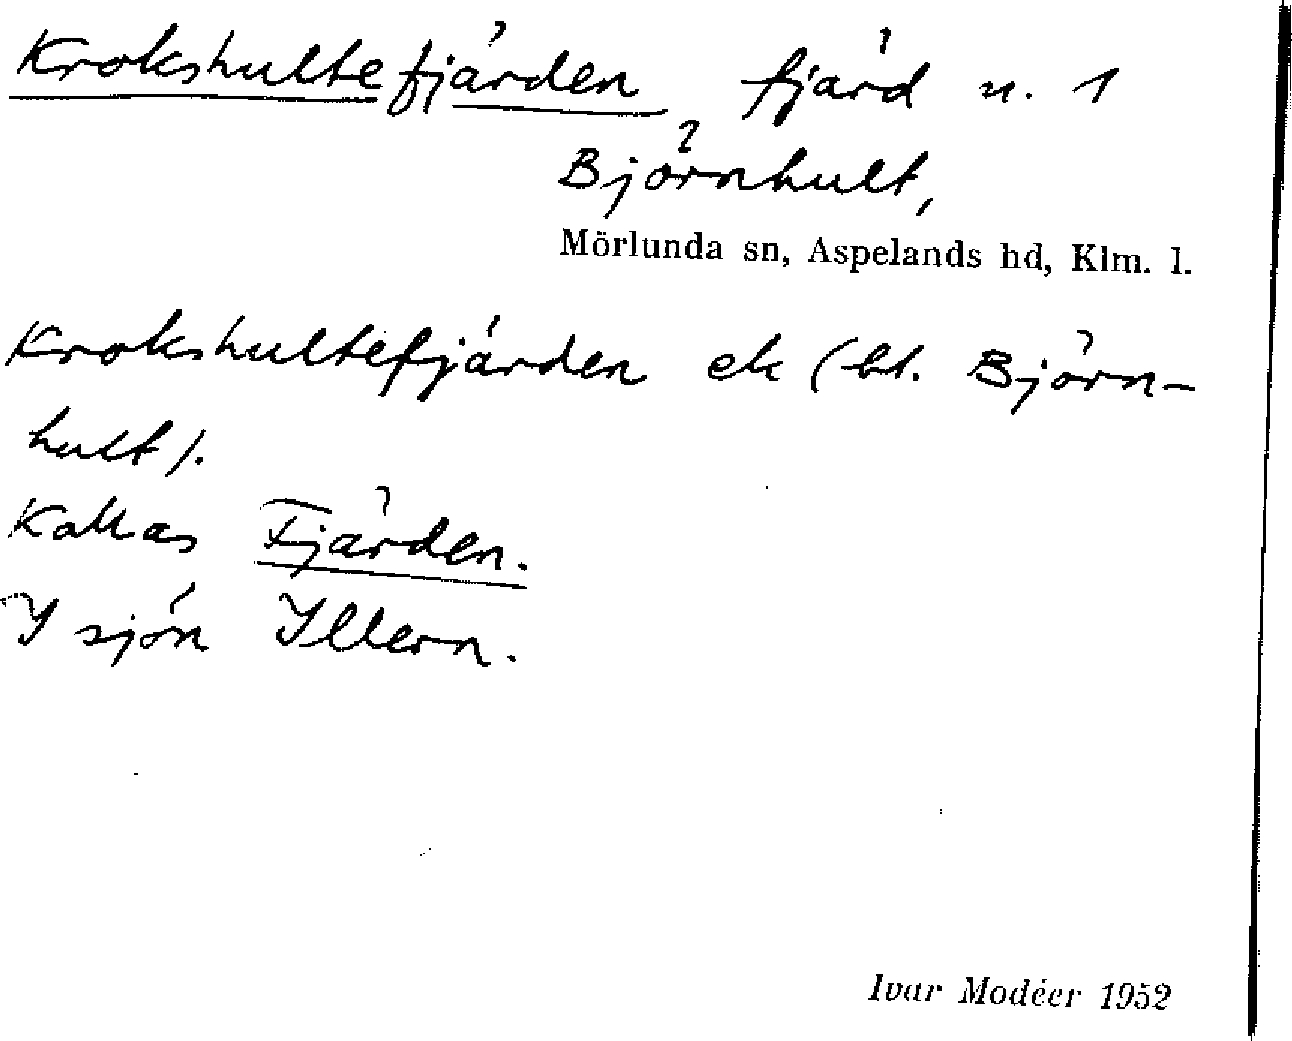 Krokshultefjärden, fjärd n. 1
Björnhult,
Mörlunda sn, Aspelands hd, Klm. l.
Krokshultefjärden ek (bl. Björn-
hult).
Kallas Fjärden.
I sjön Illern.
Ivar Modéer 1952